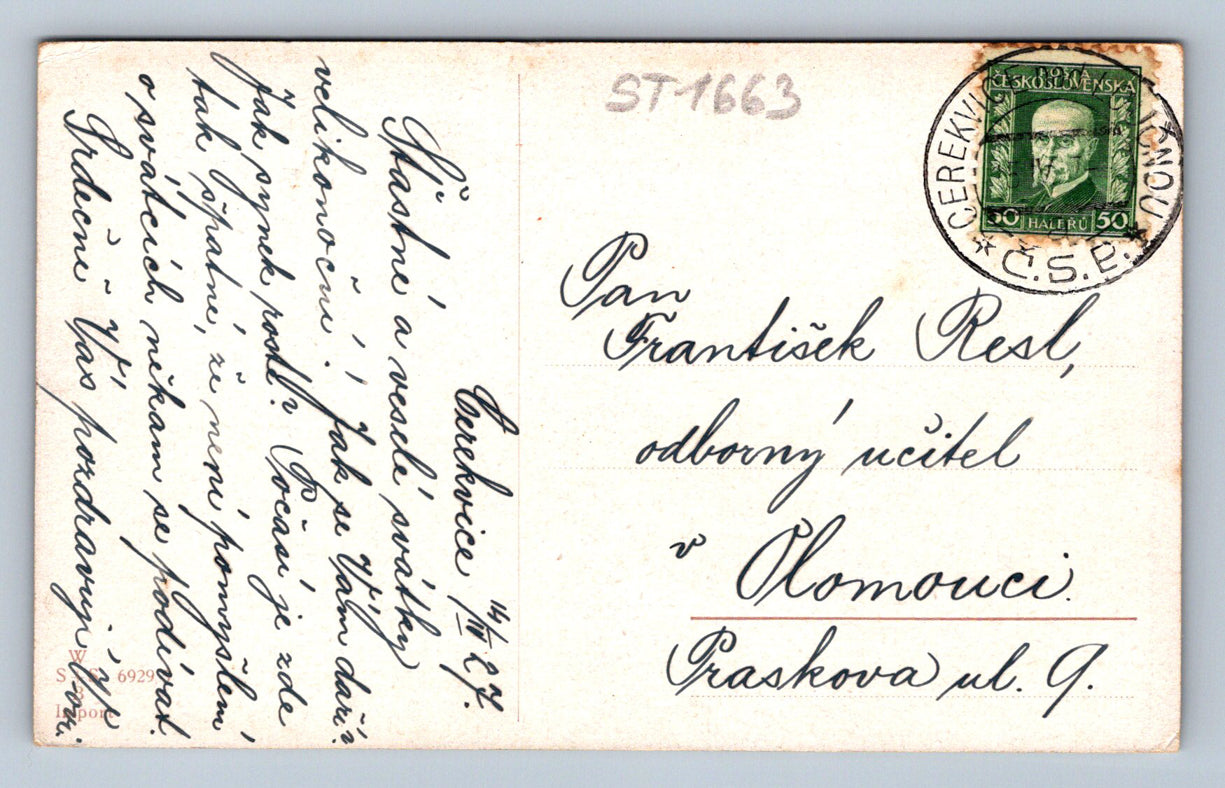 ST-1663
POŠTA
ČESKOSLOVENSKÁ
50 HALÉŘŮ 50
CEREKVICE
Č.S.P.
Cerekvice 14/IV 27.
Šťastné a veselé svátky
velikonoční. Jak se Vám daří?
Jak synek roste? Počasí je zde
tak špatné, že není pomyšlení
o svátcích někam se podívat.
Srdečně Vás pozdravují
Pan
František Resl,
odborný učitel
v Olomouci.
Praskova ul. 9.
W
S. S. B. 6929
Import